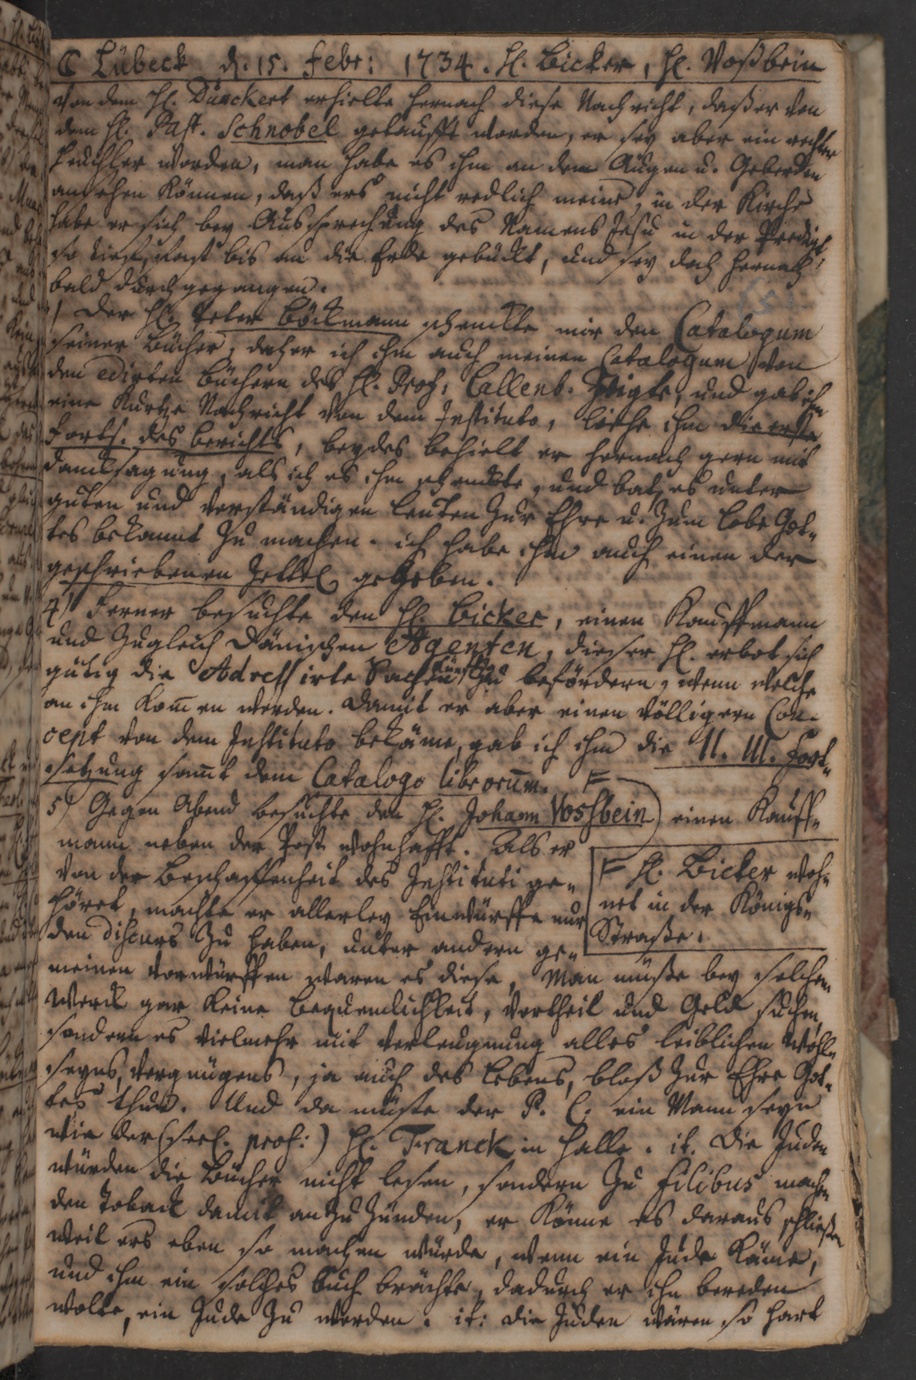 ☾ Lübeck d. 15. Febr: 1734. H. Bicker, H. Voßbein
Von dem H. Dunckert erhielte hernach diese Nachricht, daß er von
dem H. Past. Schnobel getaufft worden, er sey aber ein rechter
Heuchler worden, man habe es ihm an dem Augen u. Geberden
ansehen können, daß ers nicht redlich meine, in der Kirche
habe er sich bey Aussprechung des Namens Jesu in der Predigt
so tieff, fast bis an die Erde gebückt, und sey doch hernach
bald durchgegangen.
Der H. Peter Böckmann schenckte mir den Catalogum
seiner Bücher, daher ich ihm auch meinen Catalogum von
den edirten Büchern des H. Prof: Callenb. zeigte, und gab ihm
eine kurtze Nachricht von dem Instituto, liehe ihm die erste
Forts. des Berichts, beydes behielt er hernach gern mit
Dancksagung, als ich es ihm schenckte, und bat, es unter
guten und verständigen Leuten zur Ehre u. zum Lobe Got-
tes bekannt zu machen. ich habe ihm auch einen der
geschriebenen Zettel gegeben.
4) Ferner besuchte den H. Bicker, einen Kauffmann
und zugleich Dänischen Agenten, dieser H. erbot sich
gütig die Adressirte Sachen zu befördern, wenn welche
an ihm kom̅en werden. Damit er aber einen völligern Con-
cept von dem Instituto bekäme, gab ich ihm die II. III. Fort-
setzung sam̅t dem Catalogo librorum̅. F
5) Gegen Abend besuchte den H. Johann Vossbein) einen Kauff-
mann neben der Post wohnhafft. Als er
von der Beschaffenheit des Instituti ge-
höret, machte er allerley Einwürffe nur
den discurs zu haben, unter andern ge-
F H. Bicker woh-
net in der Königs-
Straße.
meinen Vorwürffen waren es diese, Man müste bey solchen
Werck gar keine Bequemlichkeit, Vortheil und Geld suchen,
sondern es vielmehr mit Verleugnung alles leiblichen Wohl-
seyns, Vergnügens, ja auch des Lebens, bloß zur Ehre Got-
tes thun. Und da müste der P. C. ein Mann seyn
wie der (seel. prof:) H. Franck in Halle. it. Die Juden
würden die Bücher nicht lesen, sondern zu Filibus machen
den Toback damit anzuzünden, er könne es daraus schließen
weil ers eben so machen würde, wenn ein Jude käme,
und ihm ein solches Buch brächte, dadurch er ihn bereden
wolte, ein Jude zu werden. it: die Juden wären so hart